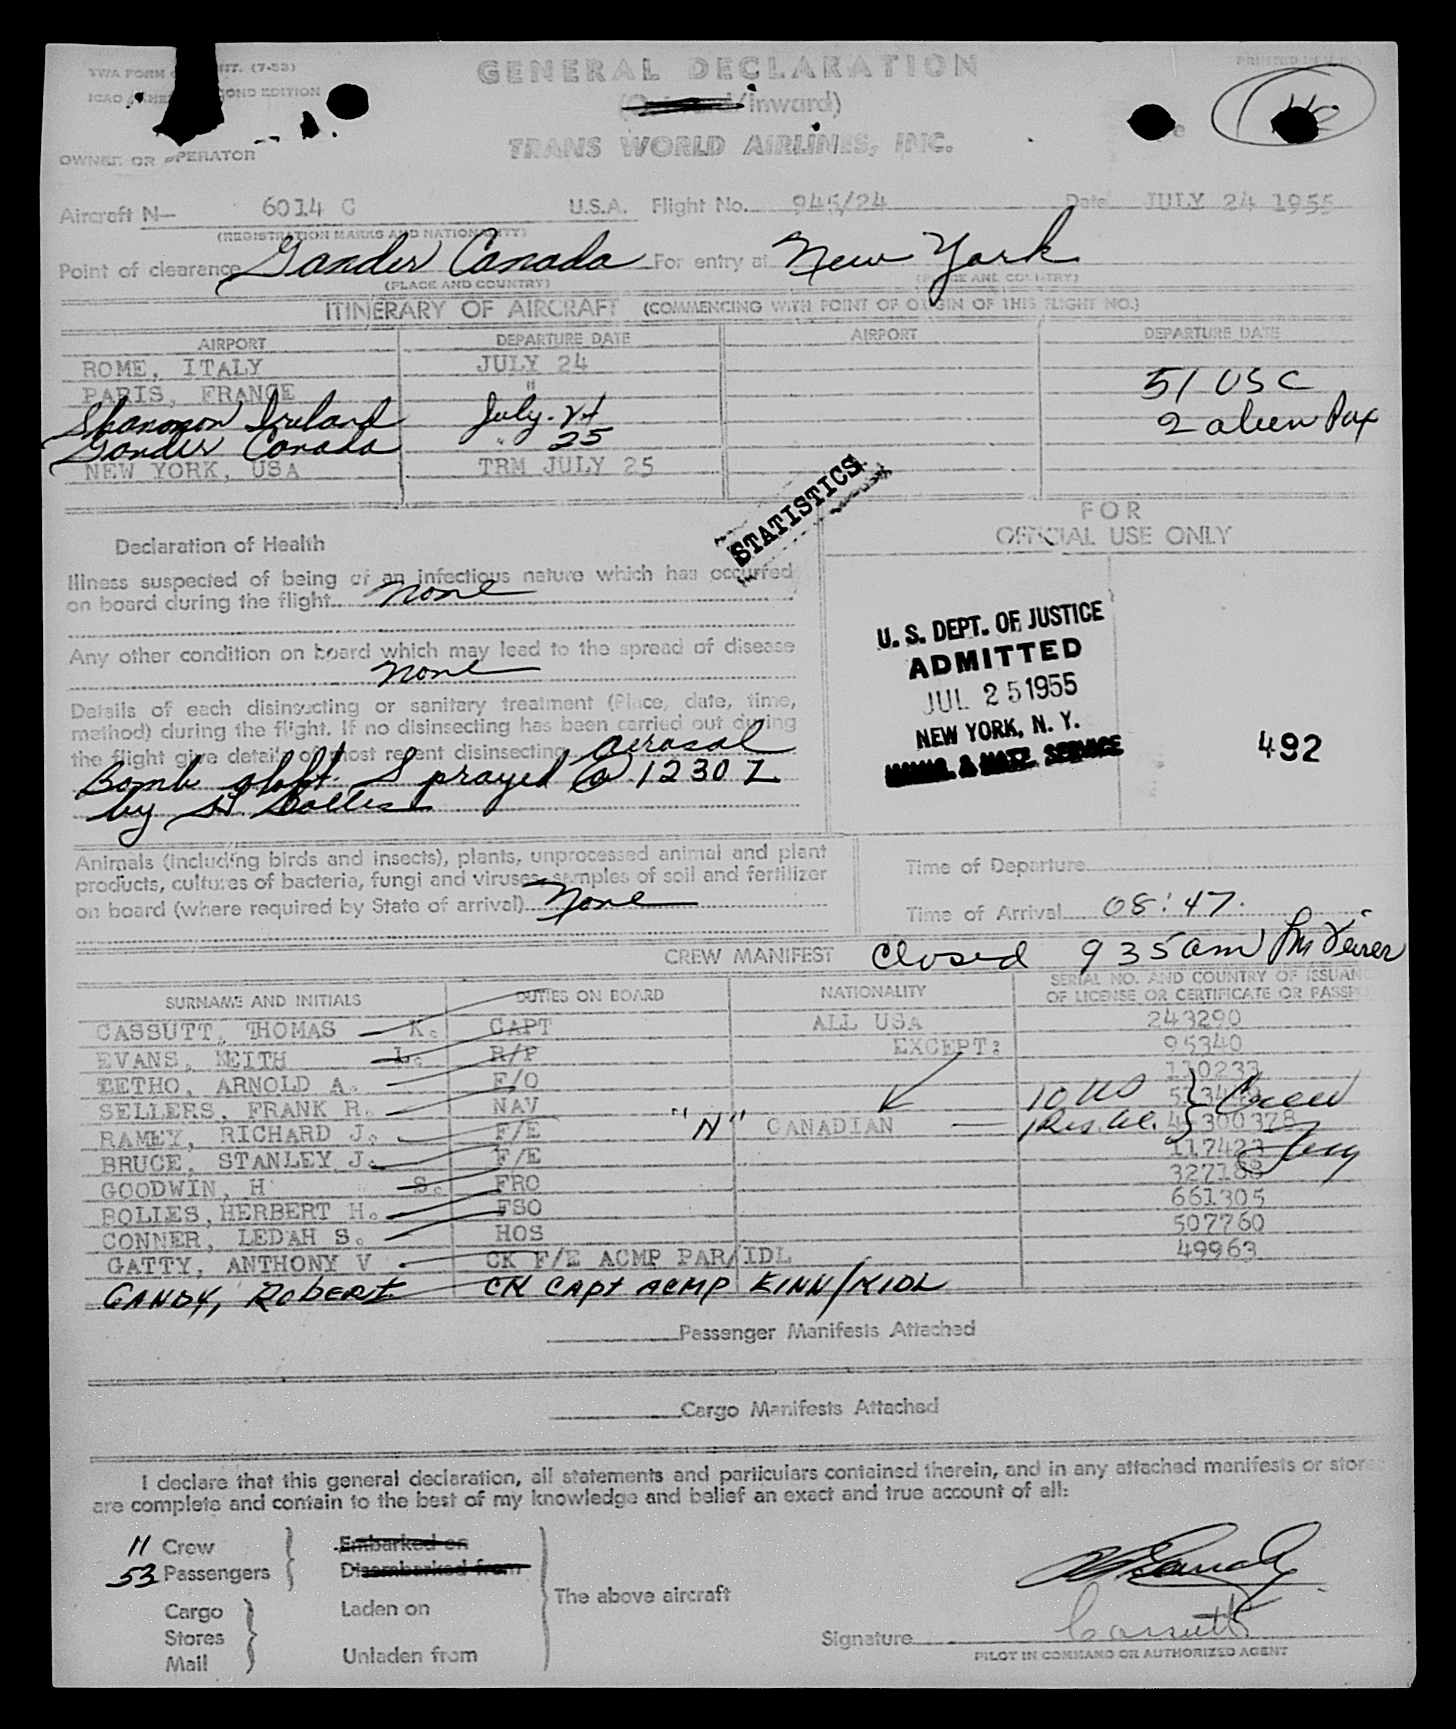 TWA FORM (7-53)
PRINTED IN U.S.
GENERAL DECLARATION
ICAO SECOND EDITION
(Outward/Inward)
TRANS WORLD AIRLINES, INC.
OWNER OR OPERATOR
Aircraft N— 6014 C U.S.A. Flight No. 945/24 Date JULY 24 1955
(REGISTRATION MARKS AND NATIONALITY)
Point of clearance Gander Canada For entry at New York
(PLACE AND COUNTRY) (PLACE AND COUNTRY)
ITINERARY OF AIRCRAFT (COMMENCING WITH POINT OF ORIGIN OF THIS FLIGHT NO.)
AIRPORT DEPARTURE DATE AIRPORT DEPARTURE DATE
ROME, ITALY JULY 24
PARIS, FRANCE " 51 USC
Shannon Ireland July. 24 2 alien Pax
Gander Canada " 25
NEW YORK, USA TRM JULY 25
STATISTICS
FOR
OFFICIAL USE ONLY
Declaration of Health
Illness suspected of being of an infectious nature which has occurred
on board during the flight None
Any other condition on board which may lead to the spread of disease
None
Details of each disinsecting or sanitary treatment (Place, date, time,
method) during the flight. If no disinsecting has been carried out during
the flight give details of most recent disinsecting aerosol
Bomb Sprayed @ 1230 Z
by H. Bolles
U. S. DEPT. OF JUSTICE
ADMITTED
JUL 25 1955
NEW YORK, N. Y.
IMMIG. & NATZ. SERVICE
492
Animals (including birds and insects), plants, unprocessed animal and plant
products, cultures of bacteria, fungi and viruses, samples of soil and fertilizer
on board (where required by State of arrival) None
Time of Departure
Time of Arrival 08:47.
CREW MANIFEST Closed 9 35 am
SURNAME AND INITIALS DUTIES ON BOARD NATIONALITY SERIAL NO. AND COUNTRY OF ISSUANCE
OF LICENSE OR CERTIFICATE OR PASSPORT
CASSUTT, THOMAS K. CAPT ALL USA 243290
EVANS, KEITH L. R/P EXCEPT: 95340
BETHO, ARNOLD A. F/O 110233
SELLERS, FRANK R. NAV 10 US } Crew
RAMEY, RICHARD J. F/E "N" CANADIAN — 1 Res. al.
BRUCE, STANLEY J. F/E 117423
GOODWIN, H S. FRO 327188
BOLLES, HERBERT H. FSO 661305
CONNER, LEDAH S. HOS 507760
GATTY, ANTHONY V CK F/E ACMP PAR/IDL 49963
GANDY, ROBERT CK CAPT ACMP EINN/KIDL
Passenger Manifests Attached
Cargo Manifests Attached
I declare that this general declaration, all statements and particulars contained therein, and in any attached manifests or stores
are complete and contain to the best of my knowledge and belief an exact and true account of all:
11 Crew Embarked on
53 Passengers Disembarked from
The above aircraft
Cargo Laden on
Stores
Mail Unladen from
Signature Cassutt
PILOT IN COMMAND OR AUTHORIZED AGENT